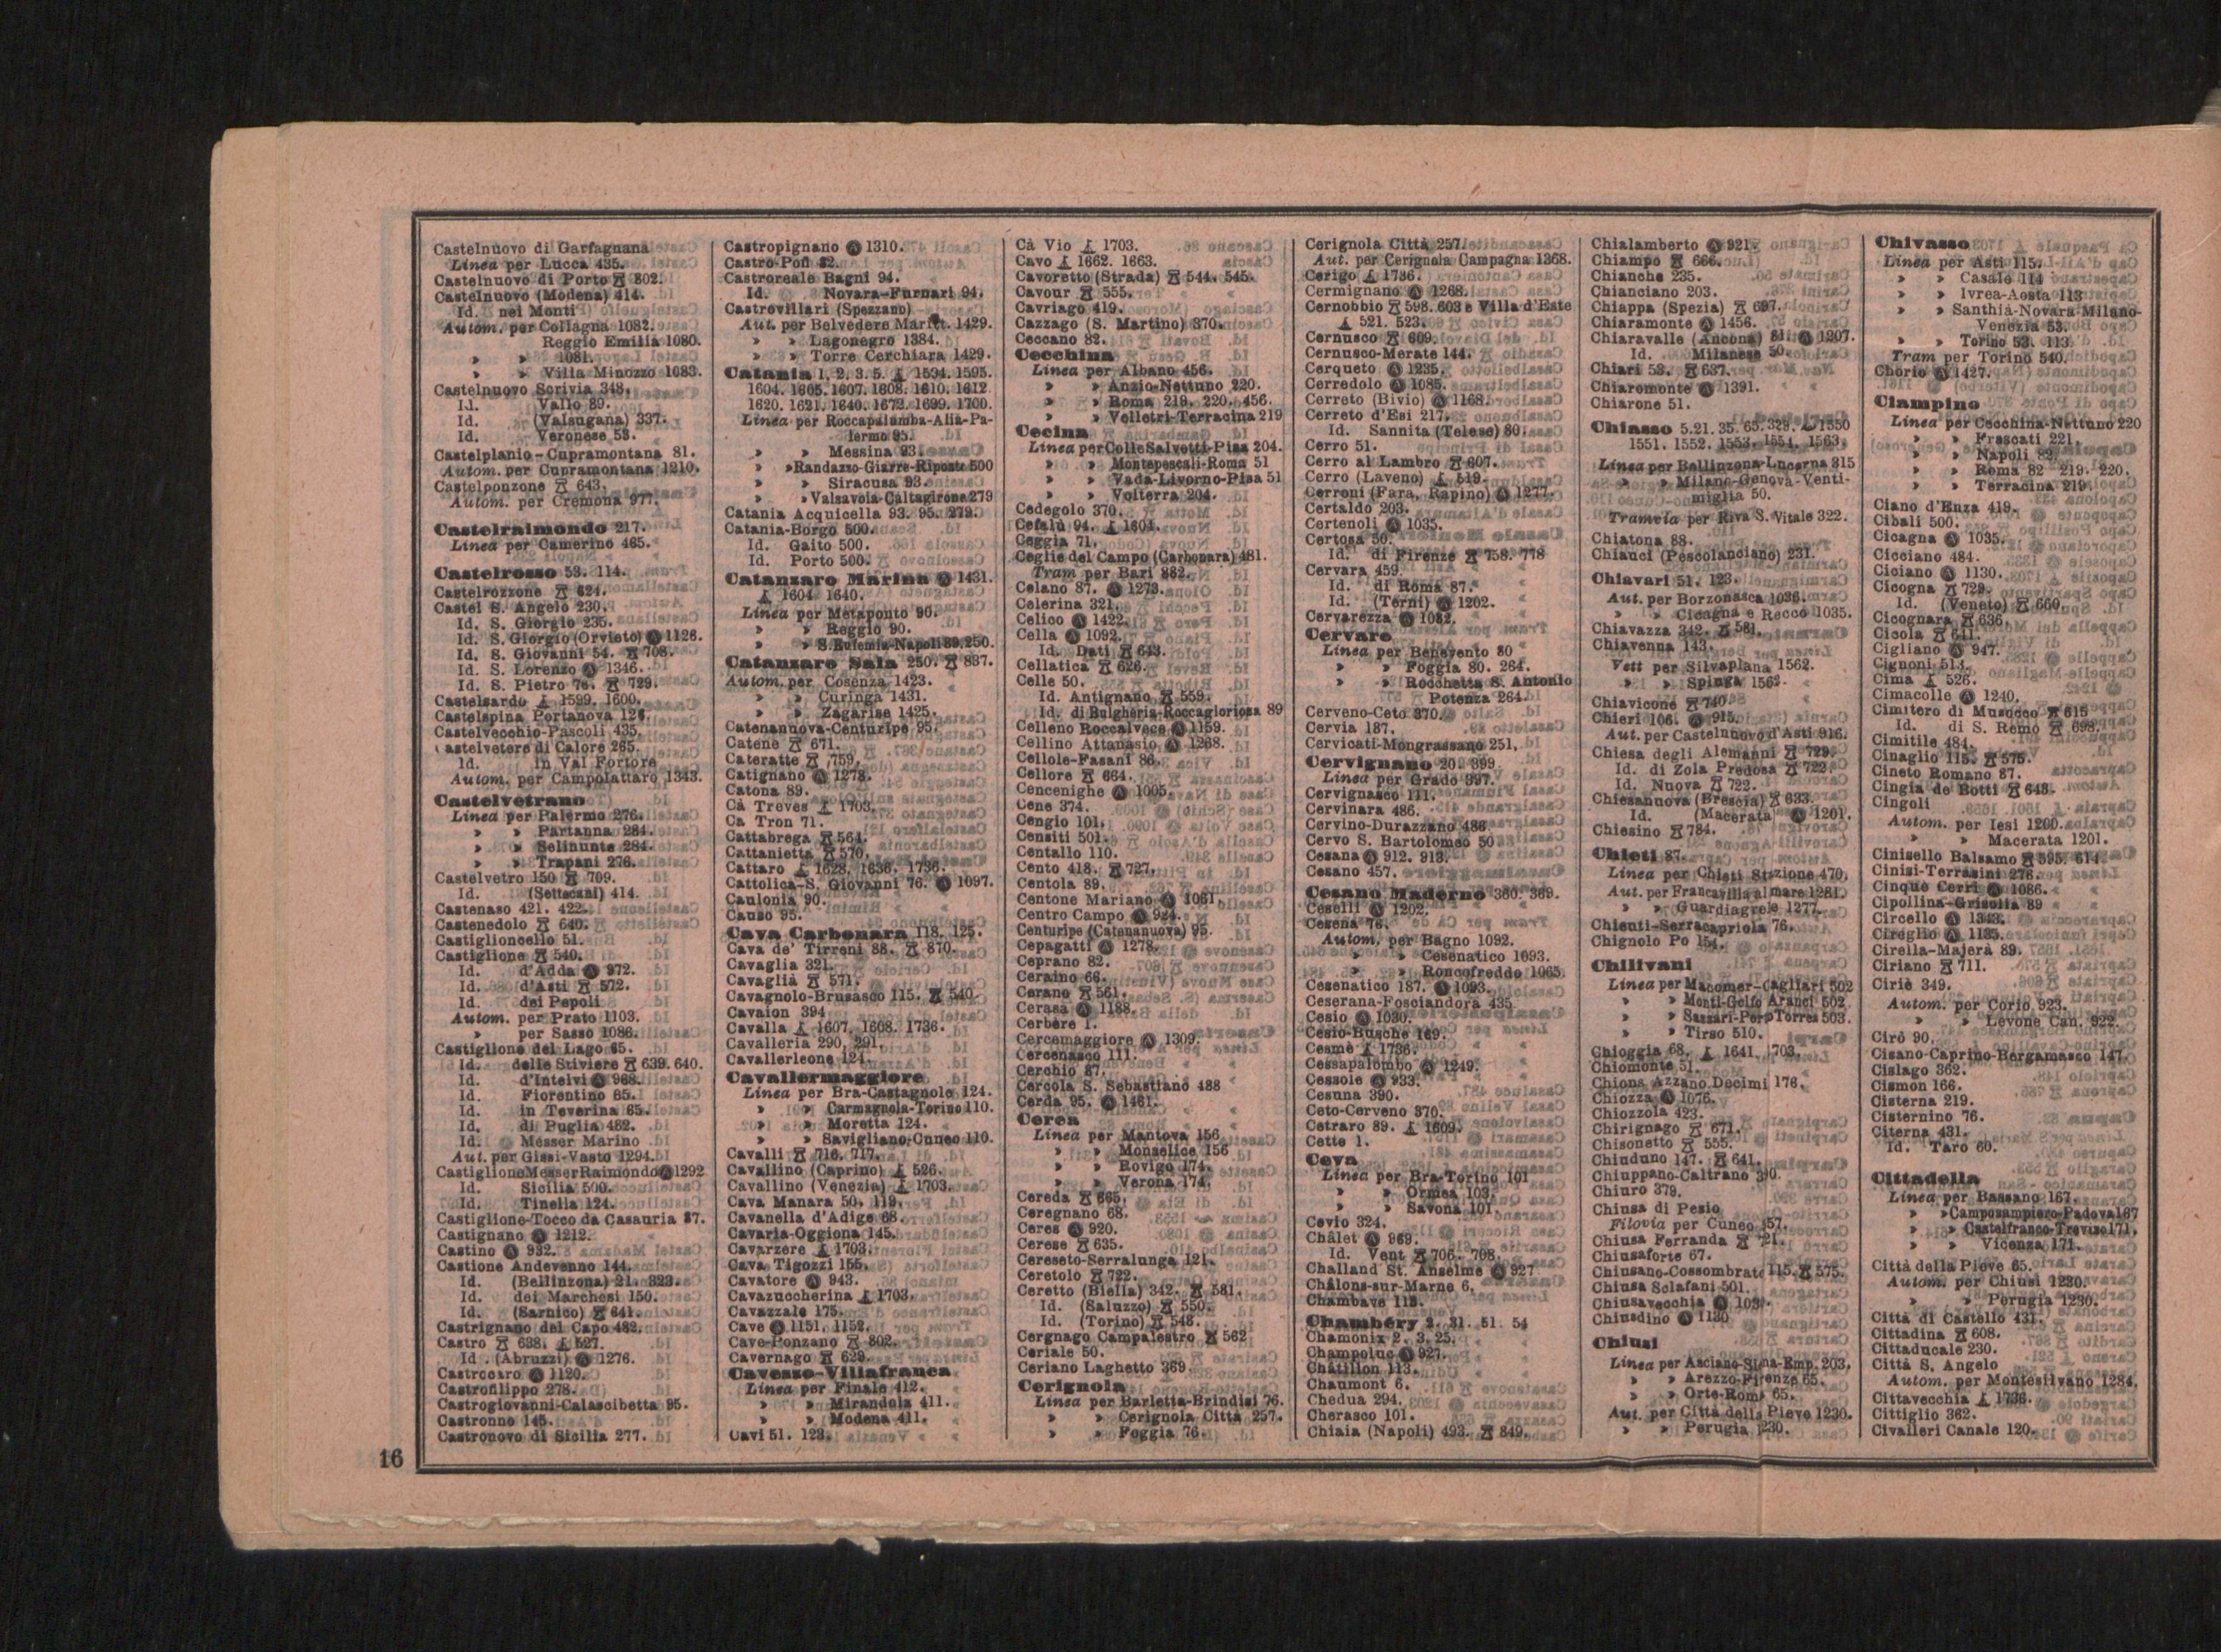 Castelnuovo di Garfagnana
Linea per Lucca 435.
Castelnuovo di Porto 802.
Castelnuovo (Modena) 414.
Id. nei Monti
Autom. per Collagna 1082.
Reggio Emilia 1080.
» » 1081.
» » Villa Minozzo 1083.
Castelnuovo Scrivia 348.
Id. Vallo 89.
Id. (Valsugana) 337.
Id. Veronese 53.
Castelplanio-Cupramontana 81.
Autom. per Cupramontana 1210.
Castelponzone 643.
Autom. per Cremona 977.
Castelraimondo 217.
Linea per Camerino 465.
Castelrosso 53. 114.
Castelrozzone 624.
Castel S. Angelo 230.
Id. S. Giorgio 235.
Id. S. Giorgio (Orvieto) 1126.
Id. S. Giovanni 54. 708.
Id. S. Lorenzo 1346.
Id. S. Pietro 76. 729.
Castelsardo 1599. 1600.
Castelspina Portanova
Castelvecchio-Pascoli 435.
astelvetere di Calore 265.
Id. in Val Fortore
Autom. per Campolattaro 1343.
Castelvetrano
Linea per Palermo 276.
» » Partanna 284.
» » Selinunte 284.
» » Trapani 276.
Castelvetro 150 709.
Id. (Settecani) 414.
Castenaso 421. 422.
Castenedolo 640.
Castiglioncello 51.
Castiglione 540.
Id. d'Adda 972.
Id. d'Asti 572.
Id. dei Pepoli
Autom. per Prato 1103.
» per Sasso 1086.
Castiglione del Lago 65.
Id. delle Stiviere 639. 640.
Id. d'Intelvi 968.
Id. Fiorentino 65.
Id. in Teverina 65.
Id. di Puglia 482.
Id. Messer Marino
Aut. per Gissi-Vasto 1294.
Castiglione Messer Raimondo 1292
Id. Sicilia 500.
Id. Tinella 124.
Castiglione-Tocco da Casauria 87.
Castignano 1212.
Castino 932.
Castione Andevenno 144.
Id. (Bellinzona) 21. 323.
Id. dei Marchesi 150.
Id. (Sarnico) 641.
Castrignano del Capo 482.
Castro 638. 527.
Id. (Abruzzi) 1276.
Castrocaro 1120.
Castrofilippo 278.
Castrogiovanni-Calascibetta 95.
Castronno 145.
Castronovo di Sicilia 277.
Castropignano 1310.
Castro-Pofi 82.
Castroreale Bagni 94.
Id. Novara-Furnari 94.
Castrovillari (Spezzano)
Aut. per Belvedere Maritt. 1429.
» » Lagonegro 1384.
» » Torre Cerchiara 1429.
Catania 1, 2. 3. 5. 1594. 1595.
1604. 1605. 1607. 1608. 1610. 1612
1620. 1621. 1640. 1672. 1699. 1700.
Linea per Roccapalumba-Alia-Pa-
lermo 95.
» » Messina 93.
» » Randazzo-Giarre-Riposto 500
» » Siracusa 93.
» » Valsavoia-Caltagirone 279
Catania Acquicella 93. 95. 279.
Catania-Borgo 500.
Id. Gaito 500.
Id. Porto 500.
Catanzaro Marina 1431.
1604 1640.
Linea per Metaponto 90.
» » Reggio 90.
» » S. Eufemia-Napoli 89. 250.
Catanzaro Sala 250. 837.
Autom. per Cosenza 1423.
» » Curinga 1431.
» » Zagarise 1425.
Catenanuova-Centuripe 95.
Catene 671.
Cateratte 759.
Catignano 1278.
Catona 89.
Cà Treves 1703.
Ca Tron 71.
Cattabrega 564.
Cattanietta 570.
Cattaro 1628. 1636. 1736.
Cattolica-S. Giovanni 76. 1097.
Caulonia 90.
Causo 95.
Cava Carbonara 118. 125.
Cava de' Tirreni 88. 870.
Cavaglia 321.
Cavaglià 571.
Cavagnolo-Brusasco 115. 540
Cavaion 394
Cavalla 1607. 1608. 1736.
Cavalleria 290. 291.
Cavallerleone 124.
Cavallermaggiore
Linea per Bra-Castagnole 124.
» » Carmagnola-Torino 110.
» » Moretta 124.
» » Savigliano-Cuneo 110.
Cavalli 716. 717.
Cavallino (Caprino) 526.
Cavallino (Venezia) 1703.
Cava Manara 50. 119.
Cavanella d'Adige 68.
Cavaria-Oggiona 145.
Cavarzere 1703.
Cava Tigozzi 155.
Cavatore 943.
Cavazuccherina 1703.
Cavazzale 175.
Cave 1151. 1152.
Cave-Ponzano 802.
Cavernago 629.
Cavezzo-Villafranca
Linea per Finale 412.
» » Mirandola 411.
» » Modena 411.
Cavi 51. 123.
Cà Vio 1703.
Cavo 1662. 1663.
Cavoretto (Strada) 544. 545.
Cavour 555.
Cavriago 419.
Cazzago (S. Martino) 370.
Ceccano 82.
Cecchina
Linea per Albano 456.
» » Anzio-Nettuno 220.
» » Roma 219. 220. 456.
» » Velletri-Terracina 219
Cecina
Linea per Colle Salvetti-Pisa 204.
» » Montepescali-Roma 51
» » Vada-Livorno-Pisa 51
» » Volterra 204.
Cedegolo 370.
Cefalù 94. 1604.
Ceggia 71.
Ceglie del Campo (Carbonara) 481.
Tram per Bari 862.
Celano 87. 1273.
Celerina 321.
Celico 1422.
Cella 1092.
Id. Dati 643.
Cellatica 626.
Celle 50.
Id. Antignano 559.
Id. di Bulgheria-Roccagloriosa 89
Celleno Roccalvece 1159.
Cellino Attanasio 1268.
Cellole-Fasani 86.
Cellore 664.
Cencenighe 1005.
Cene 374.
Cengio 101.
Censiti 501.
Centallo 110.
Cento 418. 727.
Centola 89.
Centone Mariano 1061.
Centro Campo 924.
Centuripe (Catenanuova) 95.
Cepagatti 1278.
Ceprano 82.
Ceraino 66.
Cerano 561.
Cerasa 1188.
Cerbère 1.
Cercemaggiore 1309.
Cercenasco 111.
Cerchio 87.
Cercola S. Sebastiano 488
Cerda 95. 1461.
Cerea
Linea per Mantova 156.
» » Monselice 156
» » Rovigo 174.
» » Verona 174.
Cereda 665.
Ceregnano 68.
Ceres 920.
Cerese 635.
Cereseto-Serralunga 121.
Ceretolo 722.
Ceretto (Biella) 342. 581.
Id. (Saluzzo) 550.
Id. (Torino) 548.
Cergnago Campalestro 562
Ceriale 50.
Ceriano Laghetto 369
Cerignola
Linea per Barletta-Brindisi 76.
» » Cerignola Città 257.
» » Foggia 76.
Cerignola Città 257.
Aut. per Cerignola Campagna 1368.
Cerigo 1736.
Cermignano 1268.
Cernobbio 598. 603 e Villa d'Este
521. 523.
Cernusco 609.
Cernusco-Merate 144.
Cerqueto 1235.
Cerredolo 1085.
Cerreto (Bivio) 1168.
Cerreto d'Esi 217.
Id. Sannita (Telese) 80.
Cerro 51.
Cerro al Lambro 607.
Cerro (Laveno) 519.
Cerroni (Fara, Rapino) 1277.
Certaldo 203.
Certenoli 1035.
Certosa 50.
Id. di Firenze 758. 778
Cervara 459.
Id. di Roma 87.
Id. (Terni) 1202.
Cervarezza 1082.
Cervaro
Linea per Benevento 80
» » Foggia 80. 264.
» » Rocchetta S. Antonio
Potenza 264.
Cerveno-Ceto 370.
Cervia 187.
Cervicati-Mongrassano 251.
Cervignano 20. 399
Linea per Grado 397.
Cervignasco 111.
Cervinara 486.
Cervino-Durazzano 486.
Cervo S. Bartolomeo 50
Cesana 912. 913.
Cesano 457.
Cesano Maderno 360. 369.
Ceselli 1202.
Cesena 76.
Autom. per Bagno 1092.
» » Cesenatico 1093.
» » Roncofreddo 1065.
Cesenatico 187. 1093.
Ceserana-Fosciandora 435.
Cesio 1030.
Cesio-Busche 169.
Cesmè 1736.
Cessapalombo 1249.
Cessole 933.
Cesuna 390.
Ceto-Cerveno 370.
Cetraro 89. 1609.
Cette 1.
Ceva
Linea per Bra-Torino 101
» » Ormea 103.
» » Savona 101.
Cevio 324.
Châlet 969.
Id. Vent 706. 708.
Challand St. Anselme 927
Châlons-sur-Marne 6.
Chambave 113.
Chambéry 2. 31. 51. 54
Chamonix 2. 3. 25.
Champoluc 927.
Châtillon 113.
Chaumont 6.
Chedua 294.
Cherasco 101.
Chiaia (Napoli) 493. 849.
Chialamberto 921.
Chiampo 666.
Chianche 235.
Chianciano 203.
Chiappa (Spezia) 697.
Chiaramonte 1456.
Chiaravalle (Ancona) 81. 1207.
Id. Milanese 50.
Chiari 53. 637.
Chiaromonte 1391.
Chiarone 51.
Chiasso 5. 21. 35. 65. 329. 1550
1551. 1552. 1553. 1554. 1563.
Linea per Bellinzona-Lucerna 315
» » Milano-Genova-Venti-
miglia 50.
Tramvia per Riva S. Vitale 322.
Chiatona 88.
Chiauci (Pescolanciano) 231.
Chiavari 51. 123.
Aut. per Borzonasca 1036.
» » Cicagna e Recco 1035.
Chiavazza 342. 581.
Chiavenna 143.
Vett per Silvaplana 1562.
» » Spluga 1562.
Chiavicone 740.
Chieri 106. 915.
Aut. per Castelnuovo d'Asti 916.
Chiesa degli Alemanni 729.
Id. di Zola Predosa 722.
Id. Nuova 722.
Chiesanuova (Brescia) 633.
Id. (Macerata) 1201.
Chiesino 784.
Chieti 87.
Linea per Chieti Stazione 470.
Aut. per Francavilla al mare 1281.
» » Guardiagrele 1277.
Chieuti-Serracapriola 76.
Chignolo Po 154.
Chilivani
Linea per Macomer-Cagliari 502
» » Monti-Golfo Aranci 502
» » Sassari-Porto Torres 503.
» » Tirso 510.
Chioggia 68. 1641. 1703.
Chiomonte 51.
Chions Azzano Decimi 176.
Chiozza 1076.
Chiozzola 423.
Chirignago 671.
Chisonetto 555.
Chiuduno 147. 641.
Chiuppano-Caltrano
Chiuro 379.
Chiusa di Pesio
Filovia per Cuneo
Chiusa Ferranda 721.
Chiusaforte 67.
Chiusano-Cossombrato 115. 575.
Chiusa Sclafani 501.
Chiusavecchia
Chiusdino 1130
Chiusi
Linea per Asciano-Siena-Emp. 203.
» » Arezzo-Firenze 65.
» » Orte-Roma 65.
Aut. per Città della Pieve 1230.
» » Perugia 1230.
Chivasso
Linea per Asti 115.
» » Casale 114
» » Ivrea-Aosta 113
» » Santhià-Novara-Milano-
Venezia 53.
» » Torino 53. 113.
Tram per Torino 540.
Chorio 1427.
Ciampino
Linea per Cecchina-Nettuno 220
» » Frascati 221.
» » Napoli 82.
» » Roma 82 219. 220.
» » Terracina 219.
Ciano d'Enza 419.
Cibali 500.
Cicagna 1035.
Cicciano 484.
Ciciano 1130.
Cicogna 729.
Id. (Veneto) 660.
Cicognara 636.
Cicola 641.
Cigliano 947.
Cignoni 513.
Cima 526.
Cimacolle 1240.
Cimitero di Musocco 615
Id. di S. Remo 698.
Cimitile 484.
Cinaglio 115. 575.
Cineto Romano 87.
Cingia de Botti 648.
Cingoli
Autom. per Iesi 1200.
» Macerata 1201.
Cinisello Balsamo 595. 614.
Cinisi-Terrasini 276.
Cinque Cerri 1086.
Cipollina-Grisolia 89
Circello 1343.
Cireglio 1135.
Cirella-Majerà 89.
Ciriano 711.
Ciriè 349.
Autom. per Corio 923.
» » Levone Can. 922.
Cirò 90.
Cisano-Caprino-Bergamasco 147.
Cislago 362.
Cismon 166.
Cisterna 219.
Cisternino 76.
Citerna 431.
Id. Taro 60.
Cittadella
Linea per Bassano 167.
» » Camposampiero-Padova 167
» » Castelfranco-Treviso 171.
» » Vicenza 171.
Città della Pieve 65.
Autom. per Chiusi 1230.
» » Perugia 1230.
Città di Castello 431.
Cittadina 608.
Cittaducale 230.
Città S. Angelo
Autom. per Montesilvano 1284.
Cittavecchia 1736.
Cittiglio 362.
Civalleri Canale 120.
16